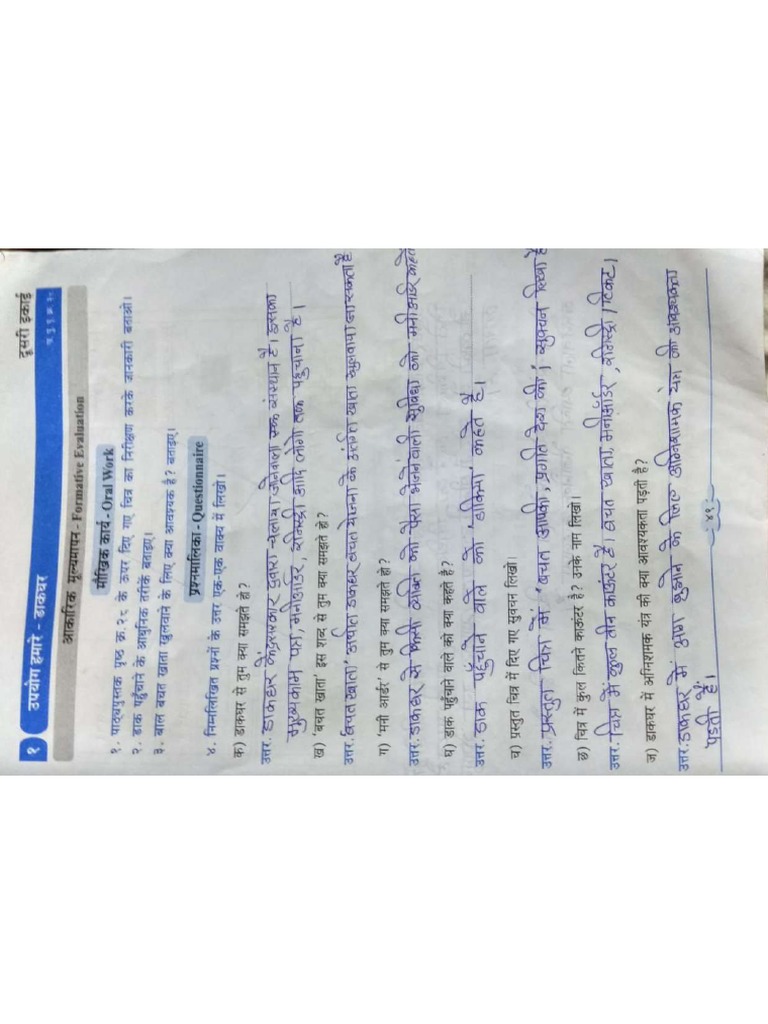 दूसरी इकाई
१ उपयोग हमारे - डाकघर
आकारिक मूल्यमापन - Formative Evaluation
मौखिक कार्य - Oral Work
१. पाठ्यपुस्तक पृष्ठ क्र.२८ के ऊपर दिए गए चित्र का निरीक्षण करके जानकारी बताओ।
२. डाक पहुँचाने के आधुनिक तरीके बताइए।
३. बाल बचत खाता खुलवाने के लिए क्या आवश्यक है? बताइए।
प्रश्नमालिका - Questionnaire
४. निम्नलिखित प्रश्नों के उत्तर एक-एक वाक्य में लिखो।
क) डाकघर से तुम क्या समझते हो?
उत्तर. डाकघर केंद्रसरकार द्वारा चलाया जानेवाला एक संस्थान है। इसका
मुख्यकाम पत्र, मनीऑर्डर, रजिस्ट्री आदि लोगो तक पहुंचाना है।
ख) 'बचत खाता' इस शब्द से तुम क्या समझते हो?
उत्तर. 'बचत खाता' अर्थात डाकघर बचत योजना के अंतर्गत खाता खुलवाया जा सकता है
ग) 'मनी आर्डर' से तुम क्या समझते हो?
उत्तर. डाकघर से किसी व्यक्ति को पैसा भेजनेवाली सुविधा को मनीआर्डर कहते
घ) डाक पहुँचाने वाले को क्या कहते है?
उत्तर. डाक पहुँचाने वाले को 'डाकिया' कहते है।
च) प्रस्तुत चित्र में दिए गए सुवचन लिखो।
उत्तर. प्रस्तुत चित्र में 'बचत आपकी, प्रगति देश की। सुवचन दिया है
छ) चित्र में कुल कितने काऊंटर है? उनके नाम लिखो।
उत्तर. चित्र में कुल तीन काऊंटर है। बचत खाता, मनीऑर्डर, रजिस्ट्री। टिकट।
ज) डाकघर में अग्निशमक यंत्र की क्या आवश्यकता पड़ती है?
उत्तर. डाकघर में आग बुझाने के लिए अग्निशामक यंत्र की आवश्यकता
पड़ती है।
४९